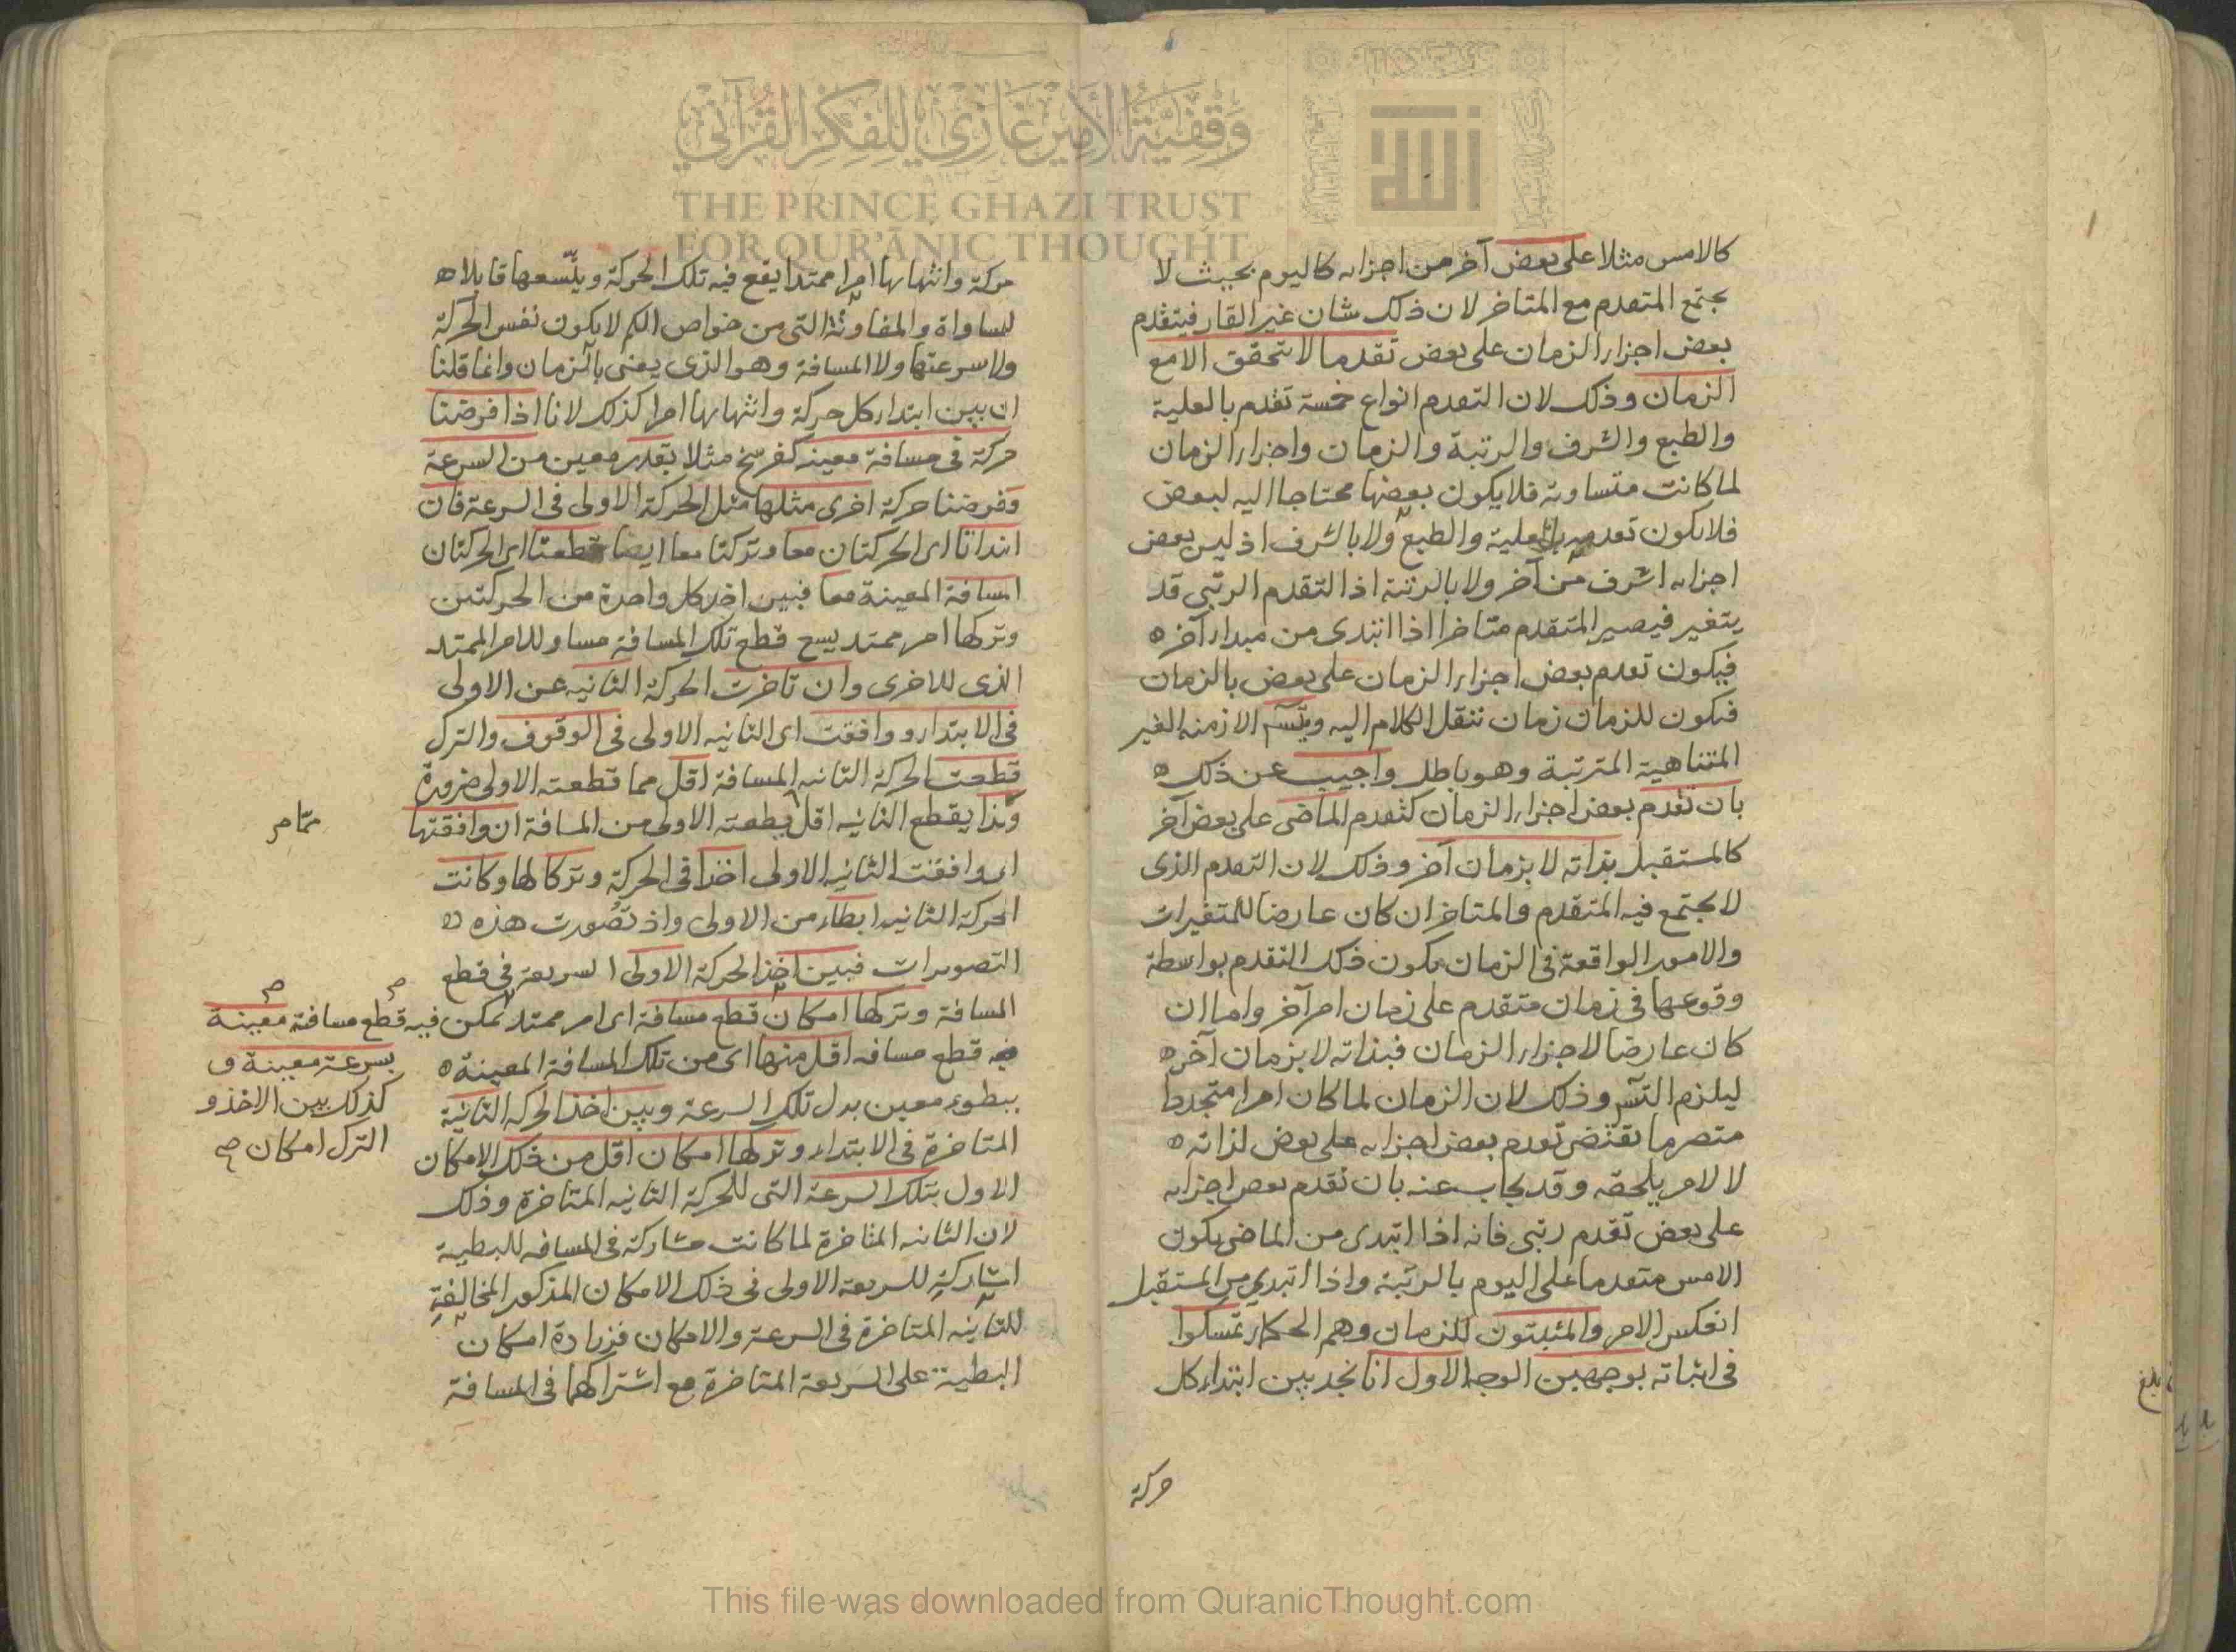 وقفية الأمير غازي للفكر القرآني
THE PRINCE GHAZI TRUST
FOR QUR'ĀNIC THOUGHT
الله
كالامس مثلا على بعض آخر من اجزاىه كاليوم بحيث لا
يجتمع المتقدم مع المتاخر لان ذلك شان غير القار فيتقدم
بعض اجزاء الزمان على بعض تقدما لا يتحقق الا مع
الزمان وذلك لان التقدم انواع خمسة تقدم بالعلية
والطبع والشرف والرتبة والزمان واجزاء الزمان
لما كانت متساوية فلا يكون بعضها محتاجا اليه لبعض
فلا يكون تقدمه بالعلية والطبع ولا بالشرف اذ ليس بعض
اجزاىه اشرف من آخر ولا بالرتبة اذ التقدم الرتبي قد
يتغير فيصير المتقدم متاخرا اذا ابتدى من مبداء آخر ه
فيكون تقدم بعض اجزاء الزمان على بعض بالزمان
فيكون للزمان زمان ننقل الكلام اليه ويتسـ الازمنه الغير
المتناهية المترتبة وهو باطل واجيب عن ذلك ه
بان تقدم بعض اجزاء الزمان كتقدم الماضى على بعض آخر
كالمستقبل بذاته لا بزمان آخر وذلك لان التقدم الذى
لا يجتمع فيه المتقدم والمتاخر ان كان عارضا للمتغيرات
والامور الواقعة فى الزمان يكون ذلك التقدم بواسطة
وقوعها فى زمان متقدم على زمان امر آخر واما ان
كان عارضا لاجزاء الزمان فبذاته لا بزمان آخر ه
ليلزم التسـ وذلك لان الزمان لما كان امرا متجددا
متصرما يقتضى تقدم بعض اجزاىه على بعض لذاته ه
لا لامر يلحقه وقد يجاب عنه بان تقدم بعض اجزاىه
على بعض تقدم رتبى فانه اذا ابتدى من الماضى يكون
الامس متقدما على اليوم بالرتبة واذا ابتدي من المستقبل
انعكس الامر والمثبتون للزمان وهم الحكماء تمسكوا
فى اثباته بوجهين الوجه الاول انا نجد بين ابتداء كل
حركة
حركة وانتهاىها امرا ممتدا يقع فيه تلك الحركة ويتسعها قابلا ه
للمساواة والمفاوتة التى من خواص الكم لا يكون نفس الحركة
ولا سرعتها ولا المسافة وهو الذى يعنى بالزمان وانما قلنا
ان بين ابتداء كل حركة وانتهاىها امرا كذلك لانا اذا فرضنا
حركة فى مسافة معينه كفرسخ مثلا بقدر معين من السرعة
وفرضنا حركة اخرى مثلها مثل الحركة الاولى فى السرعة فان
ابتداتا اى الحركتان معا وتركتا معا ايضا قطعتا اى الحركتان
المسافة المعينة معا فبين اخذ كل واحدة من الحركتين
وتركها امر ممتد يسع قطع تلك المسافة مساو للامر الممتد
الذى للاخرى وان تاخرت الحركة الثانيه عن الاولى
فى الابتداء ووافقت اى الثانيه الاولى فى الوقوف والترك
قطعت الحركة الثانيه المسافة اقل مما قطعته الاولى ضرورة
وكذا يقطع الثانيه اقل قطعته الاولى من المسافة ان وافقتها
مما صـ
اى وافقت الثانيه الاولى اخذا فى الحركة وتركا لها وكانت
الحركة الثانيه ابطاء من الاولى واذ تصورت هذه
التصويرات فبين اخذ الحركة الاولى السريعة فى قطع
المسافة وتركها امكان قطع مسافة اى امر ممتد يمكن فيه قطع مسافة معينة
بسرعة معينة و
كذلك بين الاخذ و
الترك امكان صح
قطع مسافه اقل منها اى من تلك المسافة المعينة ه
ببطوء معين بدل تلك السرعة وبين اخذ الحركه الثانية
المتاخرة فى الابتداء وتركها امكان اقل من ذلك الامكان
الاول بتلك السرعة التى للحركة الثانيه المتاخرة وذلك
لان الثانيه المتاخرة لما كانت مشاركة فى المسافه للبطيىة
المشاركة للسريعة الاولى فى ذلك الامكان المذكور المخالفة
للثانيه المتاخرة فى السرعة والامكان فزيادة امكان
البطيىة على السريعة المتاخرة مع اشتراكهما فى المسافة
بلغ
This file was downloaded from QuranicThought.com